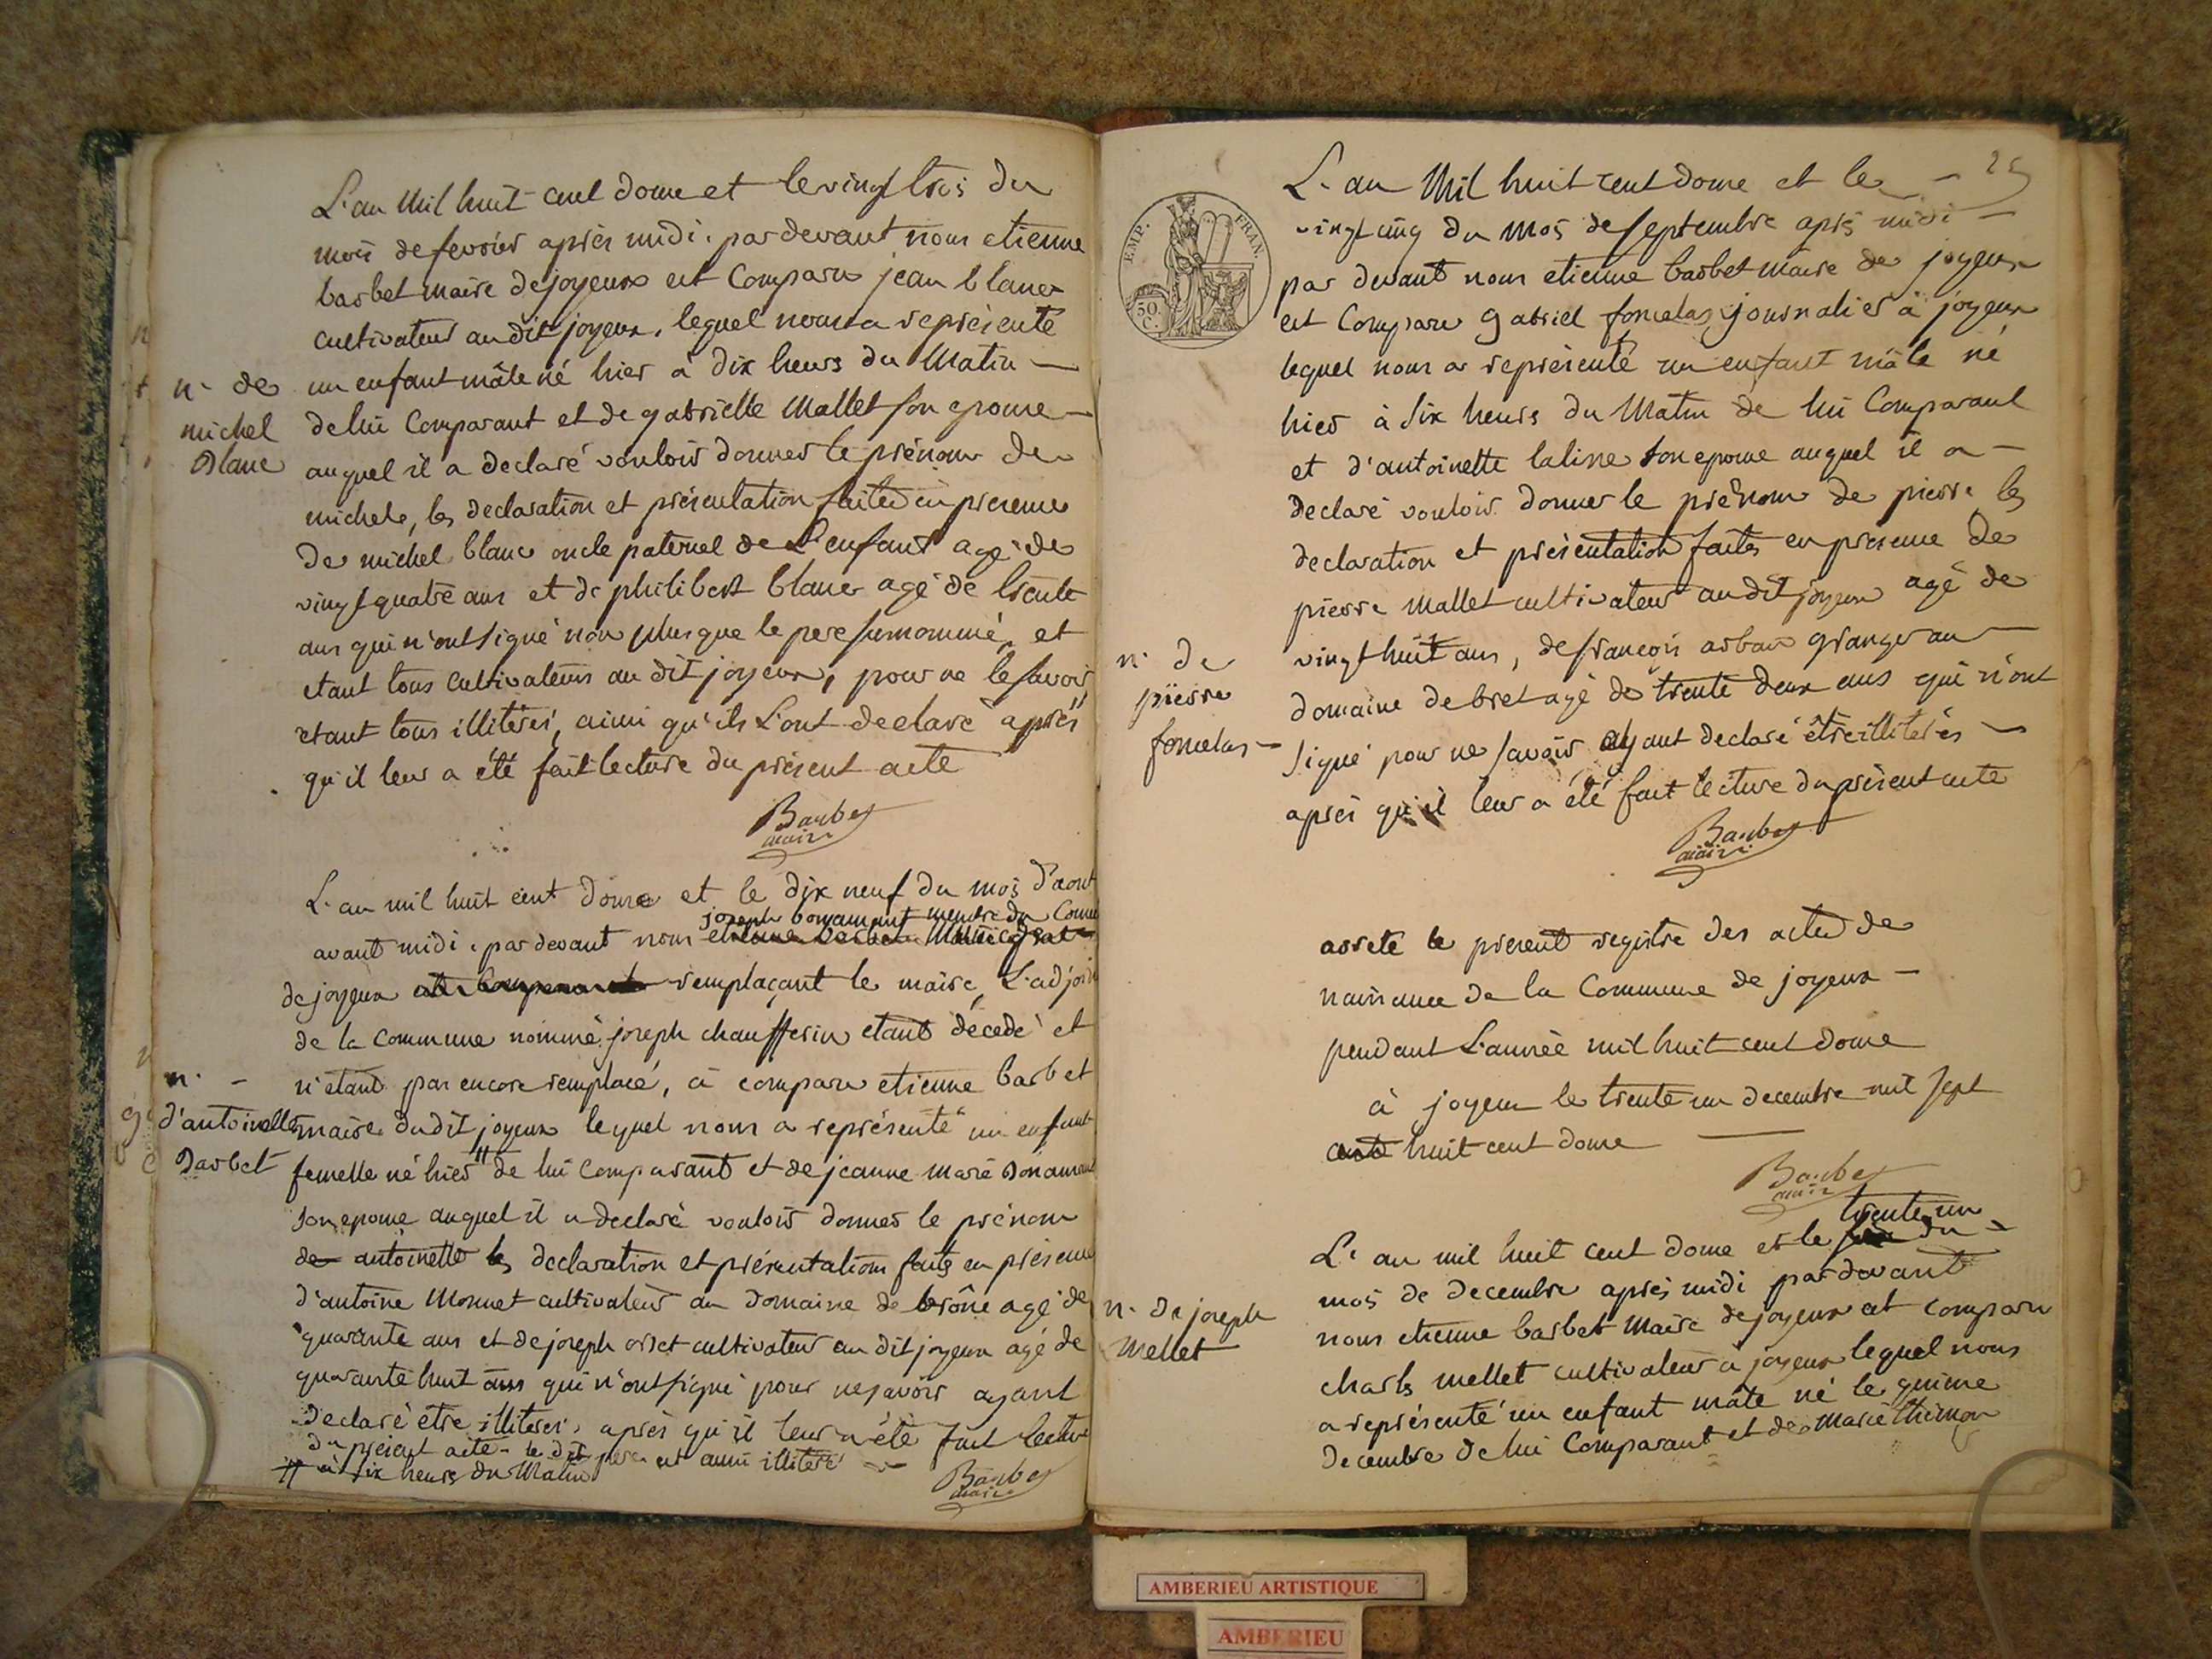 L'an Mil huit cent douze et le vingt trois du
mois de fevrier après midi. par devant nous etienne
barbet maire de joyeux est Comparu jean blanc
cultivateur au dit joyeux, lequel nous a représenté
n. de
michel
Blanc
un enfant mâle né hier à dix heurs du Matin —
de lui Comparant et de gabrielle Mallet son epouse —
auquel il a declaré vouloir donner le prénom de
michel, les declaration et présentation faites en presence
de michel blanc oncle paternel de L'enfant agé de
vingt quatre ans et de philibert blanc agé de trente
ans qui n'ont signé non plus que le pere surnommé, et
etant tous cultivateurs au dit joyeux, pour ne le savoir
etant tous illitérés, ainsi qu'ils L'ont declaré après
qu'il leur a été fait lecture du présent acte
Barbet
maire
L'an mil huit cent douze et le dix neuf du mois d'aout
joseph bonamant membre du
avant midi. par devant nous etienne barbet Maire
de joyeux est Comparu remplaçant le maire, L'adjoint
de la commune nommé joseph chaufferin etant décedé et
n. -
d'antoinette
Barbet
n'etant pas encore remplacé, à comparu etienne barbet
maire du dit joyeux lequel nous a représenté un enfant
femelle né hier # de lui comparant et de jeanne marie Bonamant
son epouse auquel il a declaré vouloir donner le prénom
de antoinette les declaration et présentation faites en présence
d'antoine Monnet cultivateur au domaine de brône agé de
quarante ans et de joseph orset cultivateur au dit joyeux agé de
quarante huit ans qui n'ont signé pour ne savoir ayant
declaré etre illiterés, après qu'il leur a été fait lecture
du présent acte. le dit pere est aussi illitéré
# à six heures du Matin
Barbet
maire
25
EMP. FRAN.
50 C.
L'an Mil huit cent douze et le —
vingt cinq du mois de septembre après midi —
par devant nous etienne barbet maire de joyeux
est Comparu gabriel fonselas, journalier à joyeux
lequel nous a représenté un enfant mâle né
hier à six heurs du Matin de lui Comparant
et d'antoinette laline son epouse auquel il a —
declaré vouloir donner le prénom de pierre les
declaration et présentation faites en présence de
pierre Mallet cultivateur au dit joyeux agé de
n. de
pierre
fonselas —
vingt huit ans, de françois arban granger au —
domaine de bret agé de trente deux ans qui n'ont
signé pour ne savoir ayant declaré être illitérés —
après qu'il leur a été fait lecture du présent acte
Barbet
maire
arreté le présent registre des actes de
naissance de la Commune de joyeux —
pendant L'année mil huit cent douze
à joyeux le trente un decembre mil sept
cent huit cent douze —
Barbet
maire
trente un
L'an mil huit cent douze et le du —
mois de decembre après midi par devant
n. de joseph
Mellet
nous etienne barbet Maire de joyeux est comparu
charls mellet cultivateur à joyeux lequel nous
a représenté un enfant mâle né le quinze
decembre de lui Comparant et de marie thémon
AMBERIEU ARTISTIQUE
AMBERIEU